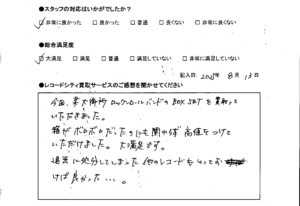 ●スタッフの対応はいかがでしたか？
☑非常に良かった □良かった □普通 □良くない □非常に良くない
●総合満足度
☑大満足 □満足 □普通 □満足していない □非常に満足していない
記入日: 2021年 8月 13日
●レコードシティ買取サービスのご感想を聞かせてください
今回、某大御所ロックンロールバンドのBOX SETを買取って
いただきました。
箱がボロボロだったのにも関わらず高値をつけて
いただけました。大満足です。
過去に処分してしまった他のレコードもとってお
けば良かった…。